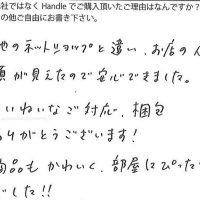 社ではなく Handle でご購入頂いたご理由はなんですか？
の他ご自由にお書き下さい。
他のネットショップと違い、お店の人
顔が見えたので安心できました。
いねいなご対応、梱包
りがとうございます！
商品もかわいく、部屋にぴった
でした!!